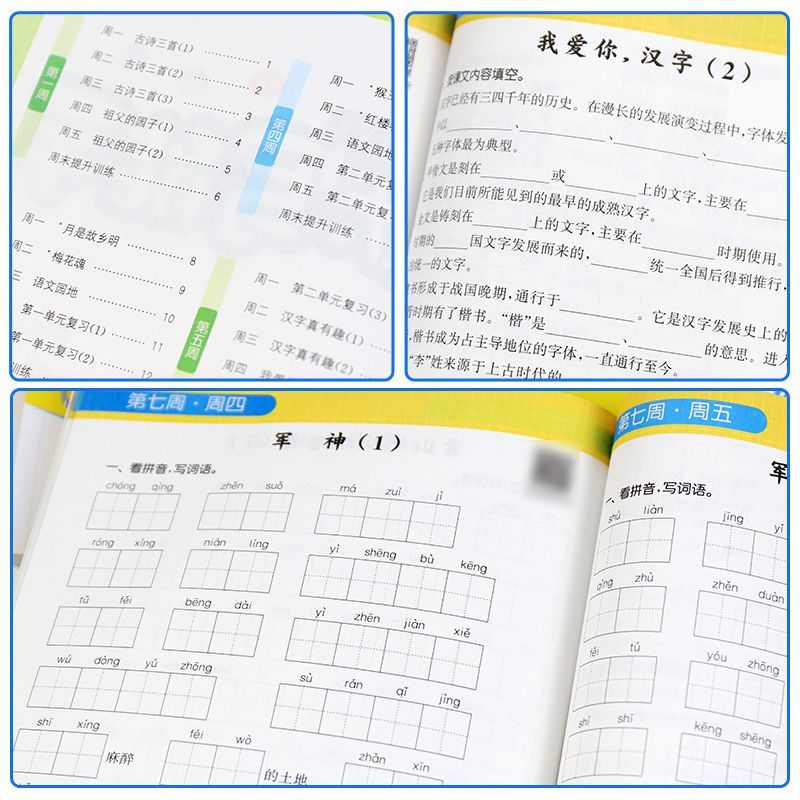 第一周
周一 古诗三首(1) 1
周二 古诗三首(2) 2
周三 古诗三首(3) 3
周四 祖父的园子(1) 4
周五 祖父的园子(2) 5
周末提升训练 6
周一 *月是故乡明 8
周二 *梅花魂 9
三 语文园地 10
第一单元复习(1) 11
第一单元复习(2) 12
训练
第四周
周一 *猴
周二 *红楼
周三 语文园地
周四 第二单元
周五 第二单元复
周末提升训练
第五周
周一 第二单元复习(3)
周二 汉字真有趣(1)
周三 汉字真有趣(2)
周四 我爱
我爱你，汉字（2）
课文内容填空。
字已经有三四千年的历史。在漫长的发展演变过程中，字体发
以______、______、______、______
五种字体最为典型。
骨文是刻在______或______上的文字，主要在______
它是我们目前所能见到的最早的成熟汉字。
金文是铸刻在______上的文字，主要在______时期使用。
时期的______国文字发展而来的，______统一全国后得到推行，
统一的文字。
书形成于战国晚期，通行于______。它是汉字发展史上的
晋时期有了楷书。“楷”是______、______的意思。进入
楷书成为占主导地位的字体，一直通行至今。
“李”姓来源于上古时代的
第七周·周四
军 神（1）
一、看拼音，写词语。
chóng qìng zhěn suǒ má zuì jì
róng xìng nián líng yì shēng bù kēng
tǔ fěi bēng dài yì zhēn jiàn xiě
wú dòng yú zhōng sù rán qǐ jìng
shī xíng 麻醉 féi wò 的土地 zhǎn xīn
第七周·周五
军
一、看拼音，写词语。
shú liàn jīng yí
qǐng zhù zhěn duàn
fěi tú yóu zhōng
shī shī kēng shēng